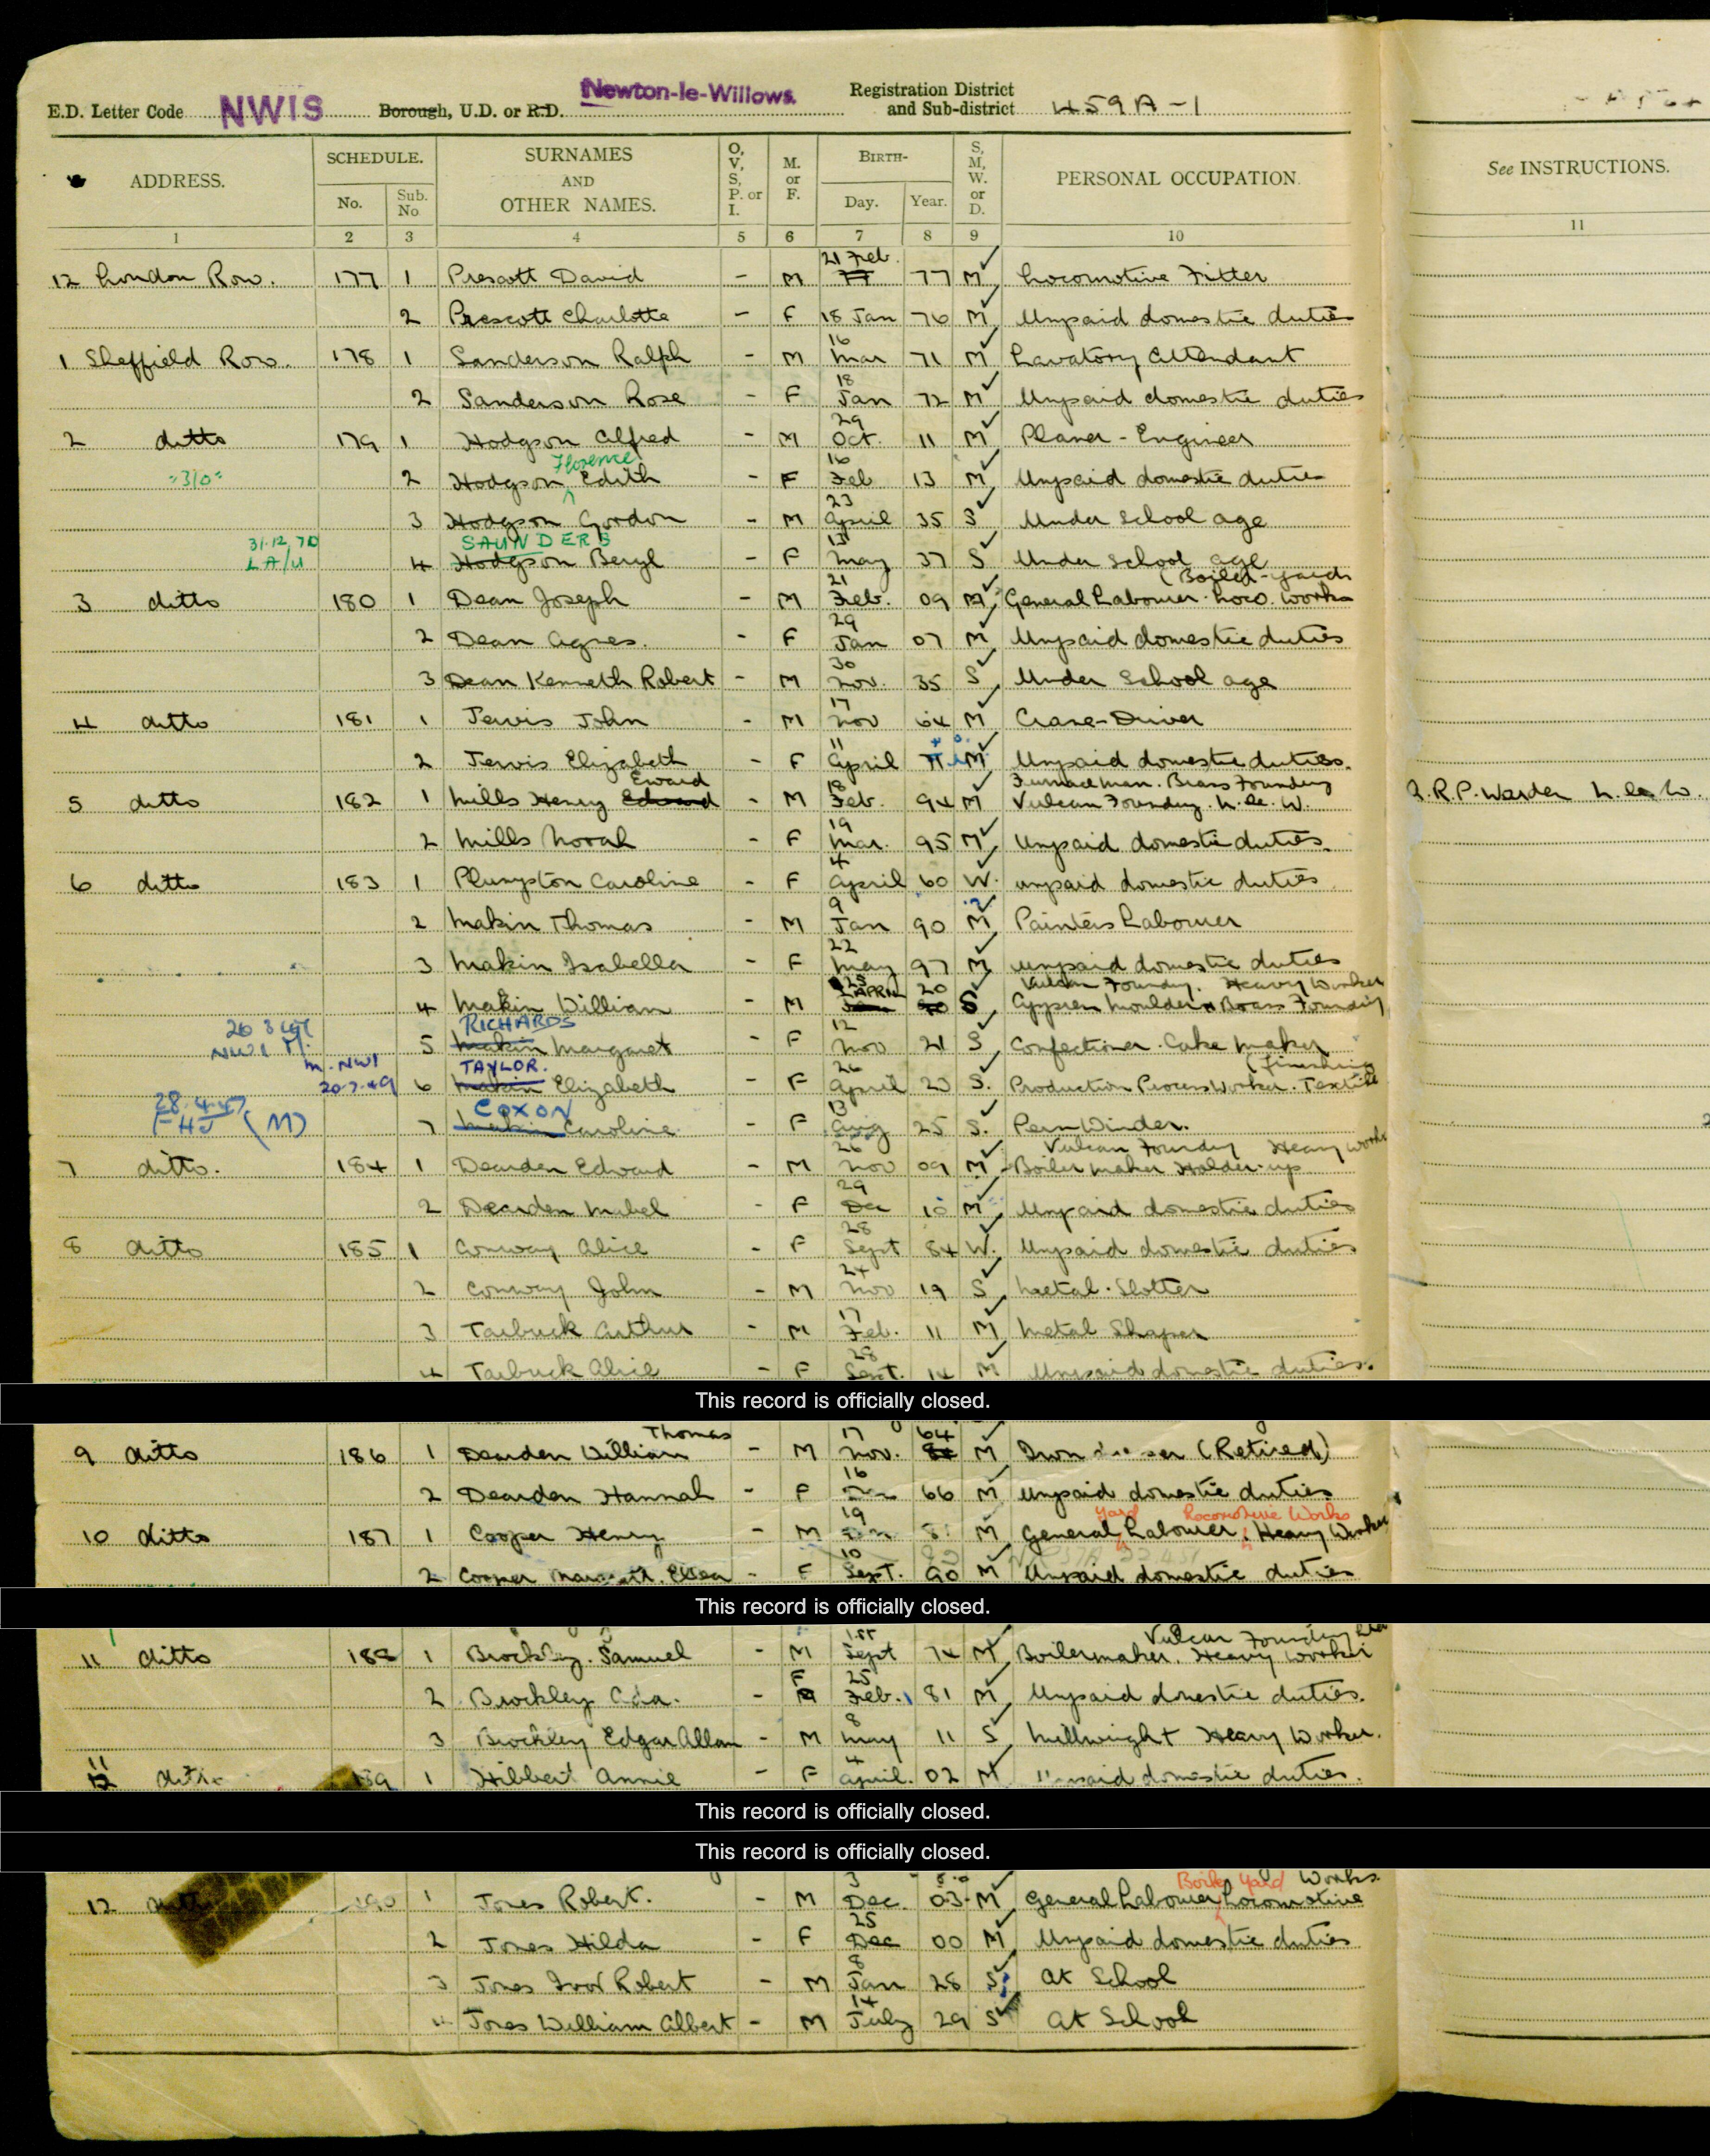 E.D. Letter Code NWIS Borough, U.D. or R.D. Newton-le-Willows Registration District and Sub-district 459A-1
ADDRESS. SCHEDULE. No. Sub. No SURNAMES AND OTHER NAMES. O, V, S, P. or I. M. or F. BIRTH- Day. Year. S, M, W. or D. PERSONAL OCCUPATION. See INSTRUCTIONS.
1 2 3 4 5 6 7 8 9 10 11
12 London Row. 177 1 Prescott David - M 21 Feb. 77 M Locomotive Fitter
2 Prescott Charlotte - F 18 Jan 76 M Unpaid domestic duties
1 Sheffield Row. 178 1 Sanderson Ralph - M 16 Mar 71 M Lavatory Attendant
2 Sanderson Rose - F 18 Jan 72 M Unpaid domestic duties
2 ditto 179 1 Hodgson Alfred - M 29 Oct. 11 M Planer - Engineer
2 Hodgson Florence Edith - F 16 Feb 13 M Unpaid domestic duties
3 Hodgson Gordon - M 23 April 35 S Under School age
31.12.70 LA/U 4 Hodgson SAUNDERS Beryl - F 13 May 37 S Under School age
3 ditto 180 1 Dean Joseph - M 21 Feb. 09 M General Labourer. Loco. Works (Boiler-yard
2 Dean Agnes. - F 29 Jan 07 M Unpaid domestic duties
3 Dean Kenneth Robert - M 30 Nov. 35 S Under School age
4 ditto 181 1 Jervis John - M 17 Nov 64 M Crane-Driver
2 Jervis Elizabeth - F 11 April M Unpaid domestic duties.
5 ditto 182 1 Mills Henry Edward Eward - M 18 Feb. 94 M Furnaceman. Brass Foundry Vulcan Foundry. N. le. W. A.R.P. Warden N. le W.
2 Mills Norah - F 19 Mar. 95 M Unpaid domestic duties.
6 ditto 183 1 Plumpton Caroline - F 4 April 60 W. unpaid domestic duties
2 Makin Thomas - M 9 Jan 90 M Painters Labourer
3 Makin Isabella - F 22 May 97 M unpaid domestic duties
4 Makin William - M 25 APRIL 20 S Vulcan Foundry. Heavy Worker Moulder Brass Foundry
5 Makin RICHARDS Margaret - F 12 Nov 21 S Confectioner. Cake Maker
M. NW1 20.7.49 6 Makin TAYLOR. Elizabeth - F 26 April 23 S. Production Process Worker. Textile (finishing
28.4.47 (M) 7 Makin COXON Caroline - F 13 Aug 25 S. Pern Winder.
7 ditto. 184 1 Dearden Edward - M 26 Nov 09 M Vulcan Foundry Heavy Work Boiler maker Holder-up
2 Dearden Mabel - F 29 Dec 10 M Unpaid domestic duties
8 ditto 185 1 Conway Alice - F 28 Sept 84 W. Unpaid domestic duties
2 Conway John - M 24 Nov 19 S Metal. Slotter
3 Tarbuck Arthur - M 17 Feb. 11 M Metal Shaper
4 Tarbuck Alice - F 28 Sept. 14 M Unpaid domestic duties.
This record is officially closed.
9 ditto 186 1 Dearden William Thomas - M 17 Nov. 64 M Iron (Retired)
2 Dearden Hannah - F 16 66 M Unpaid domestic duties
10 ditto 187 1 Cooper Henry - M 19 M General Yard Labourer. Locomotive Works Heavy Worker
2 Cooper Ellen - F 10 Sept. 90 M Unpaid domestic duties
This record is officially closed.
11 ditto 188 1 Brockley. Samuel - M 1st Sept 74 M Vulcan Foundry Boilermaker. Heavy Worker
2 Brockley Ada. - F 25 Feb. 81 M Unpaid domestic duties.
3 Brockley Edgar Allan - M 8 May 11 S Millwright Heavy Worker.
11 ditto 189 1 Hibbert Annie - F 4 April. 02 M Unpaid domestic duties.
This record is officially closed.
This record is officially closed.
12 190 1 Jones Robert. - M 3 Dec. 03 M General Labourer Boiler Yard Locomotive Works.
2 Jones Hilda - F 25 Dec 00 M Unpaid domestic duties
3 Jones Ivor Robert - M 8 Jan 28 S At School
4 Jones William Albert - M 14 July 29 S At School